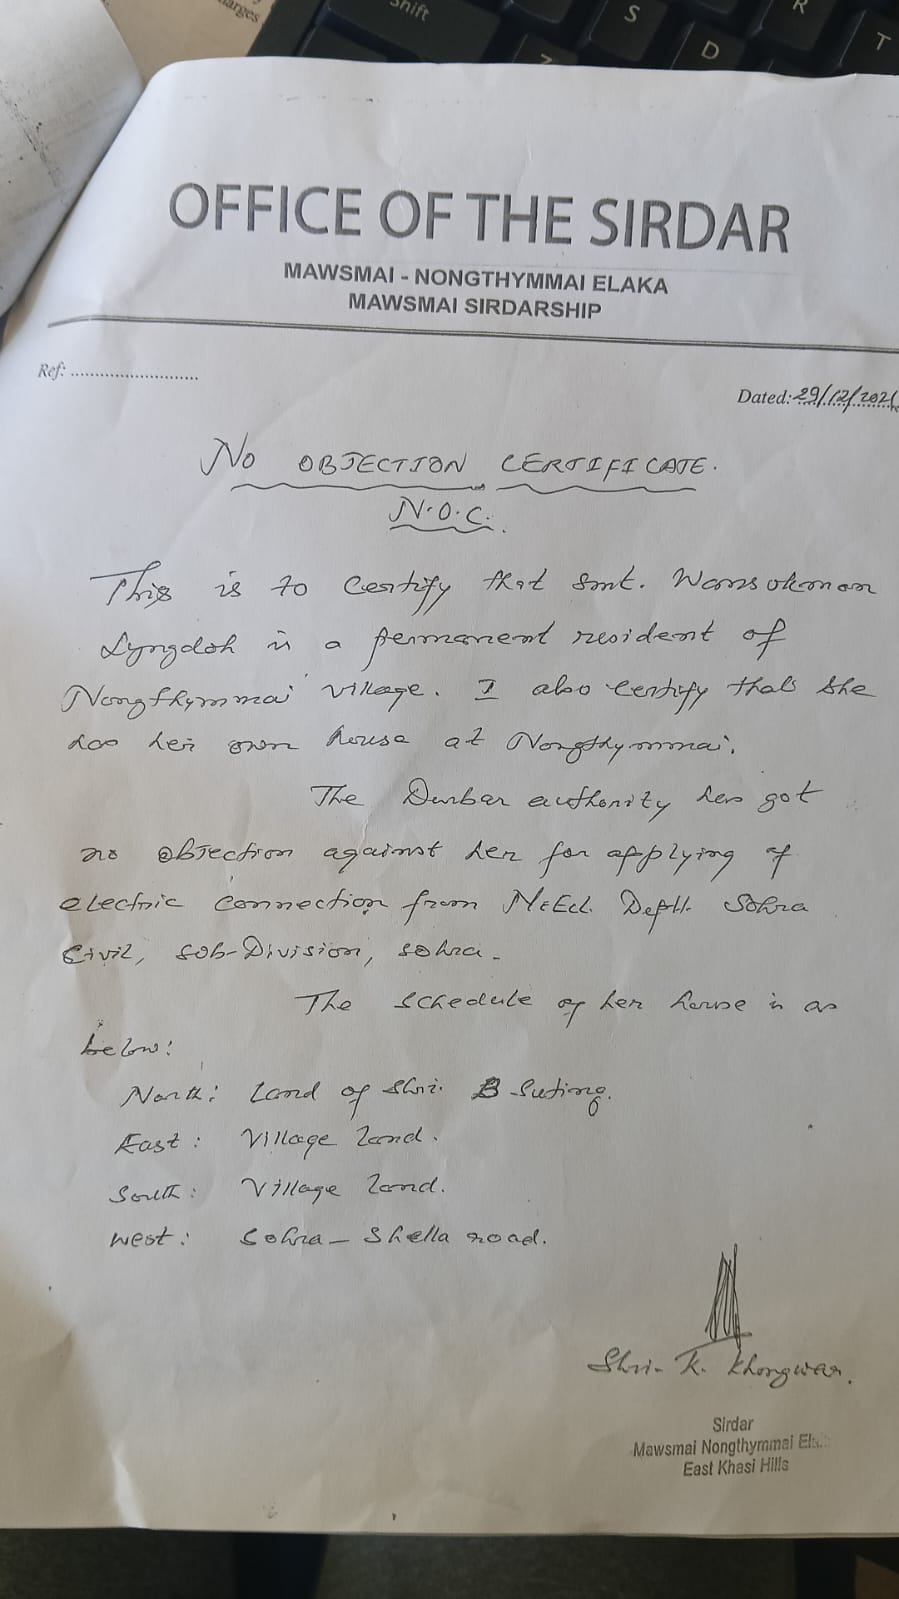 arges
Shift
S
D
R
T
Z
OFFICE OF THE SIRDAR
MAWSMAI - NONGTHYMMAI ELAKA
MAWSMAI SIRDARSHIP
Ref: ..........................
Dated: 29/12/2021
No OBJECTION CERTIFICATE.
N.O.C.
This is to certify that Smt. Wansukmon
Lyngdoh is a permanent resident of
Nongthymmai village. I also certify that she
has her own house at Nongthymmai.
The Durbar authority has got
no objection against her for applying of
electric connection from Dept. Sohra
Civil, Sob-Division, Sohra.
The schedule of her house is as
below:
North: Land of Shri. B Suting.
East: Village Land.
South: Village Land.
West: Sohra - Shella road.
Shri. K. Khongwar.
Sirdar
Mawsmai Nongthymmai
East Khasi Hills